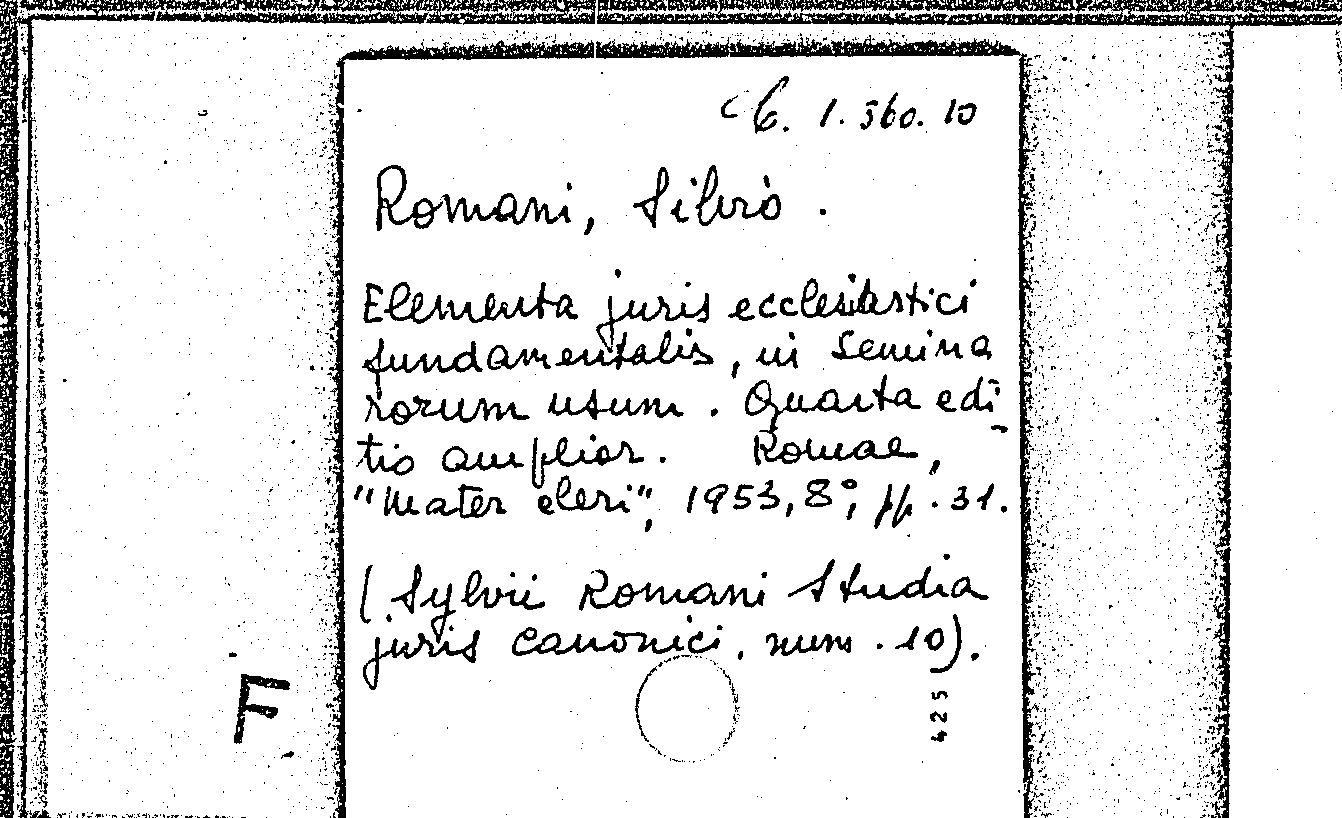 C. 1. 360. 10
Romani, Silvio.
Elementa juris ecclesiastici
fundamentalis, in Semina
rorum usum. Quarta edi
tio amplior. Romae,
"Mater cleri", 1953, 8°, pp. 31.
(Sylvii Romani Studia
juris canonici, num. 10).
425
F